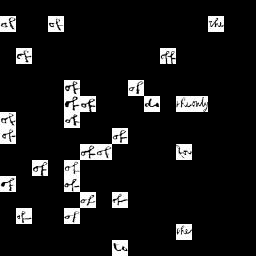 of of the
of off
of of
of of do the only
of of
of of
of of
of of
of of
of of
of of
the
to